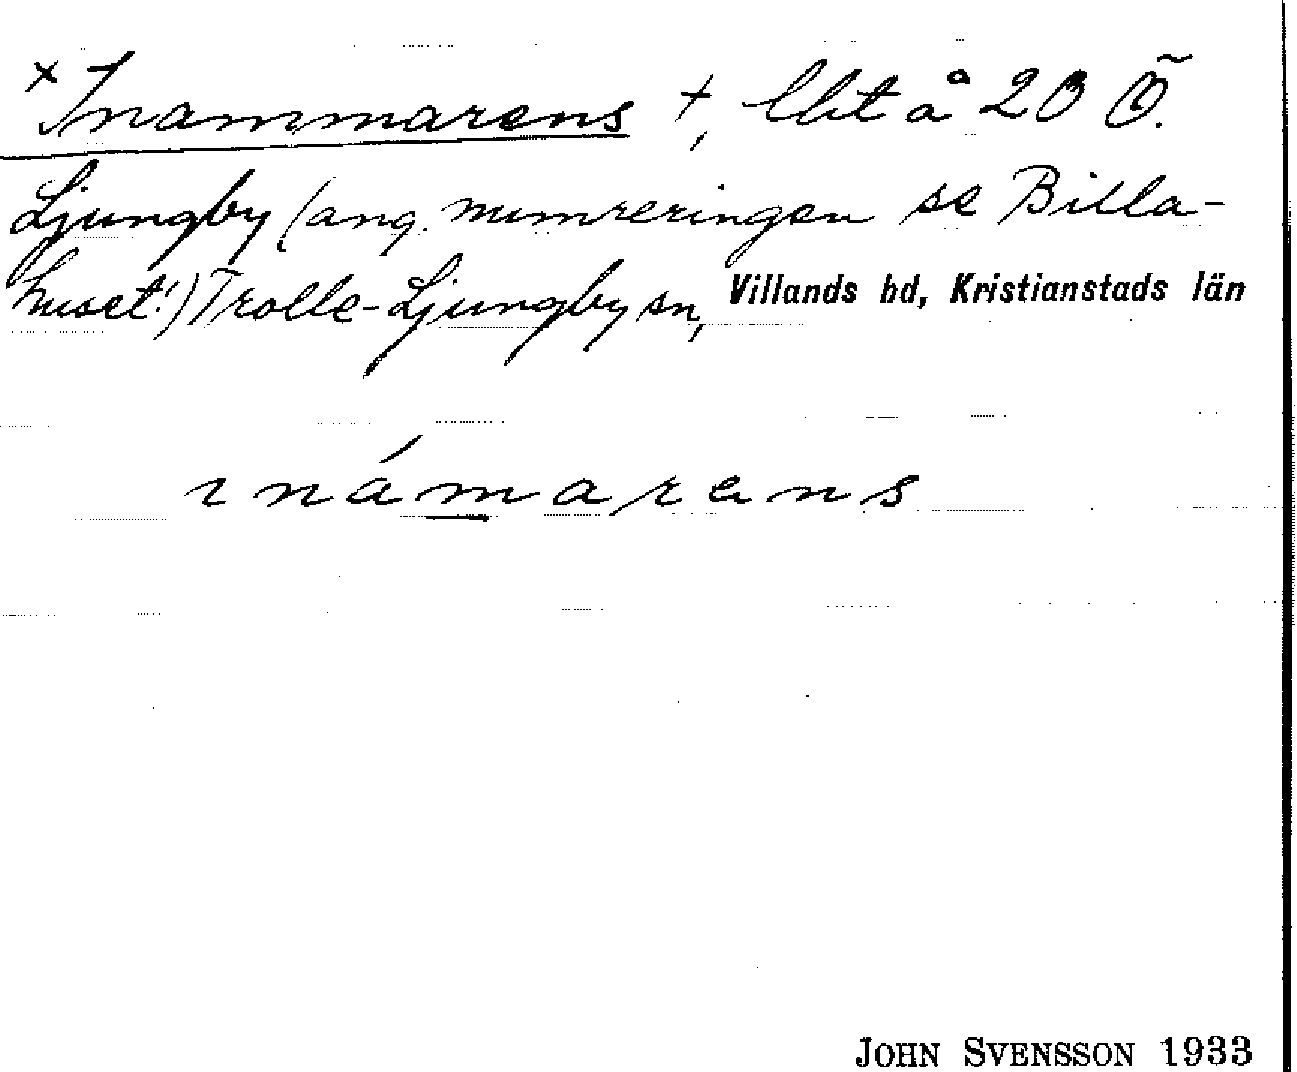 × Inammarens †, lht å 20 Ö.
Ljungby (ang. numreringen se Billa-
huset!) Trolle-Ljungby sn, Villands hd, Kristianstads län
ɩnámarens
JOHN SVENSSON 1933